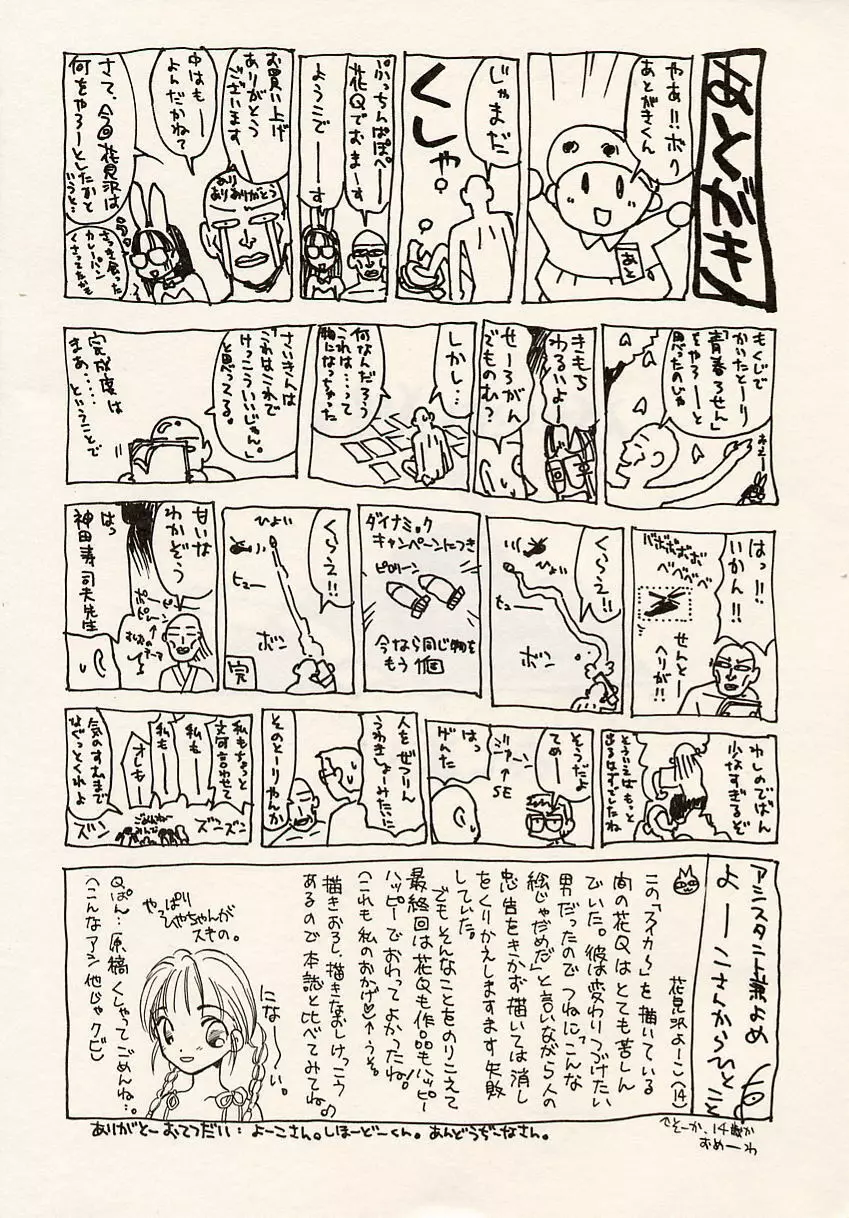 あとがき
やぁ!!ボク
あとがきくん
あと
じゃまだ
くしゃ
ぷっちんぱぽぺー
花Qでおまーす
ようこそーーす
お買い上げ
ありがとう
ございます
あり
ありありがとう
中はもー
よんだかねて
さて、今回花見沢は
何をやろーとしたかと
いうと…
さっき食った
カレーパン
くさってたかも
もくじで
かいたとーり
「青春ろせん」
をやろーと
思ったのじゃ
ねえー
きもち
わるいよー
せーろがん
でものむ?
しかし…
何なんだろう
これは…って
物になっちゃった
さいきんは
「これはこれで
けっこういいじゃん。」
と思ってる。
完成度は
まぁ……
ということで
はっ!!
いかん!!
バボボボボ
ベベベベ
せんとー
ヘリが!!
くらえ!!
ひょい
ヒュー
ボン
ダイナミック
キャンペーンにつき
ピローン
今なら同じ物を
もう1個
くらえ!!
ひょい
ヒュー
ボン
完
甘いな
わかぞう
ポーピン
ポピーン
はっ
神田寿司夫先生
わしのでばん
少なすぎるぞ
そういえばもっと
出るはずでしたね
そうだよ
てめー
ジャーン
↑
SE
はっ
げんた
人をぜつりん
うわきしょーみたいに
そのとーりやんか
私もちょっと
文句言わせて
私も
私も
オレもー
気のすむまで
なぐっとくれよ
ごめんねー
みんな
ズン
ズンズン
アシスタント兼よめ
よーこさんからひとこと
花見沢よーこ(14)
この「スイカ〜」を描いている
間の花Qはとても苦しん
でいた。彼は変わりつづけたい
男だったのでつねに「こんな
絵じゃだめだ」と言いながら人の
忠告をきかず描いては消し
をくりかえしますます失敗
していた。
でもそんなことをのりこえて
最終回は花Qも作品もハッピー
ハッピーでおわってよかったね!
(これも私のおかげ♡)↑うそ。
描きおろし、描きなおしけっこう
あるので本誌と比べてみてね。
やっぱり
ひやちゃんが
スキの。
になーーい。
Qぱん…原稿くしゃってごめんね…。
(こんなアシ他じゃクビ)
ありがとーおてつだい:よーこさん。しほーどーくん。あんどうぢーなさん。
そーか、14歳か
おめーわ